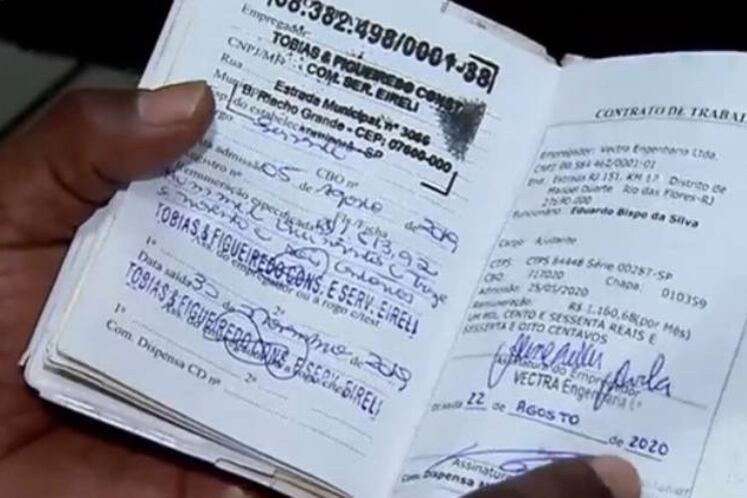 08.382.498/0001-38
Empregador
TOBIAS & FIGUEIREDO CONST
COM. SER. EIRELI
CNPJ/MF
Rua
Estrada Municipal, nº 3066
B. Riacho Grande - CEP: 07600-000
SP
Esp. do estabelecimento
Cargo Servente
CBO nº
Data admissão 05 de Agosto de 2019
Registro nº Fls/Ficha
Remuneração especificada
TOBIAS & FIGUEIREDO CONS. E SERV. EIRELI
Ass. do empregador ou a rogo c/test
1º 2º
Data saída de de 2019
TOBIAS & FIGUEIREDO CONS. E SERV. EIRELI
1º 2º
Com. Dispensa CD nº
CONTRATO DE TRABAL
Empregador: Vectra Engenharia Ltda.
CNPJ: 00.584.462/0001-01
End: Estrada RJ 151, KM 17 Distrito de
Manuel Duarte Rio das Flores-RJ
27690.000
Funcionário Eduardo Bispo da Silva
Cargo Ajudante
CTPS CTPS 84448 Série 00287-SP
CBO: 717020 Chapa: 010359
Admissão: 28/05/2020
Remuneração: R$ 1.160,68(por Mês)
UM MIL, CENTO E SESSENTA REAIS E
SESSENTA E OITO CENTAVOS
Assinatura do Empregador
VECTRA Engenharia
22 de AGOSTO de 2020
Assinatura
Com. Dispensa